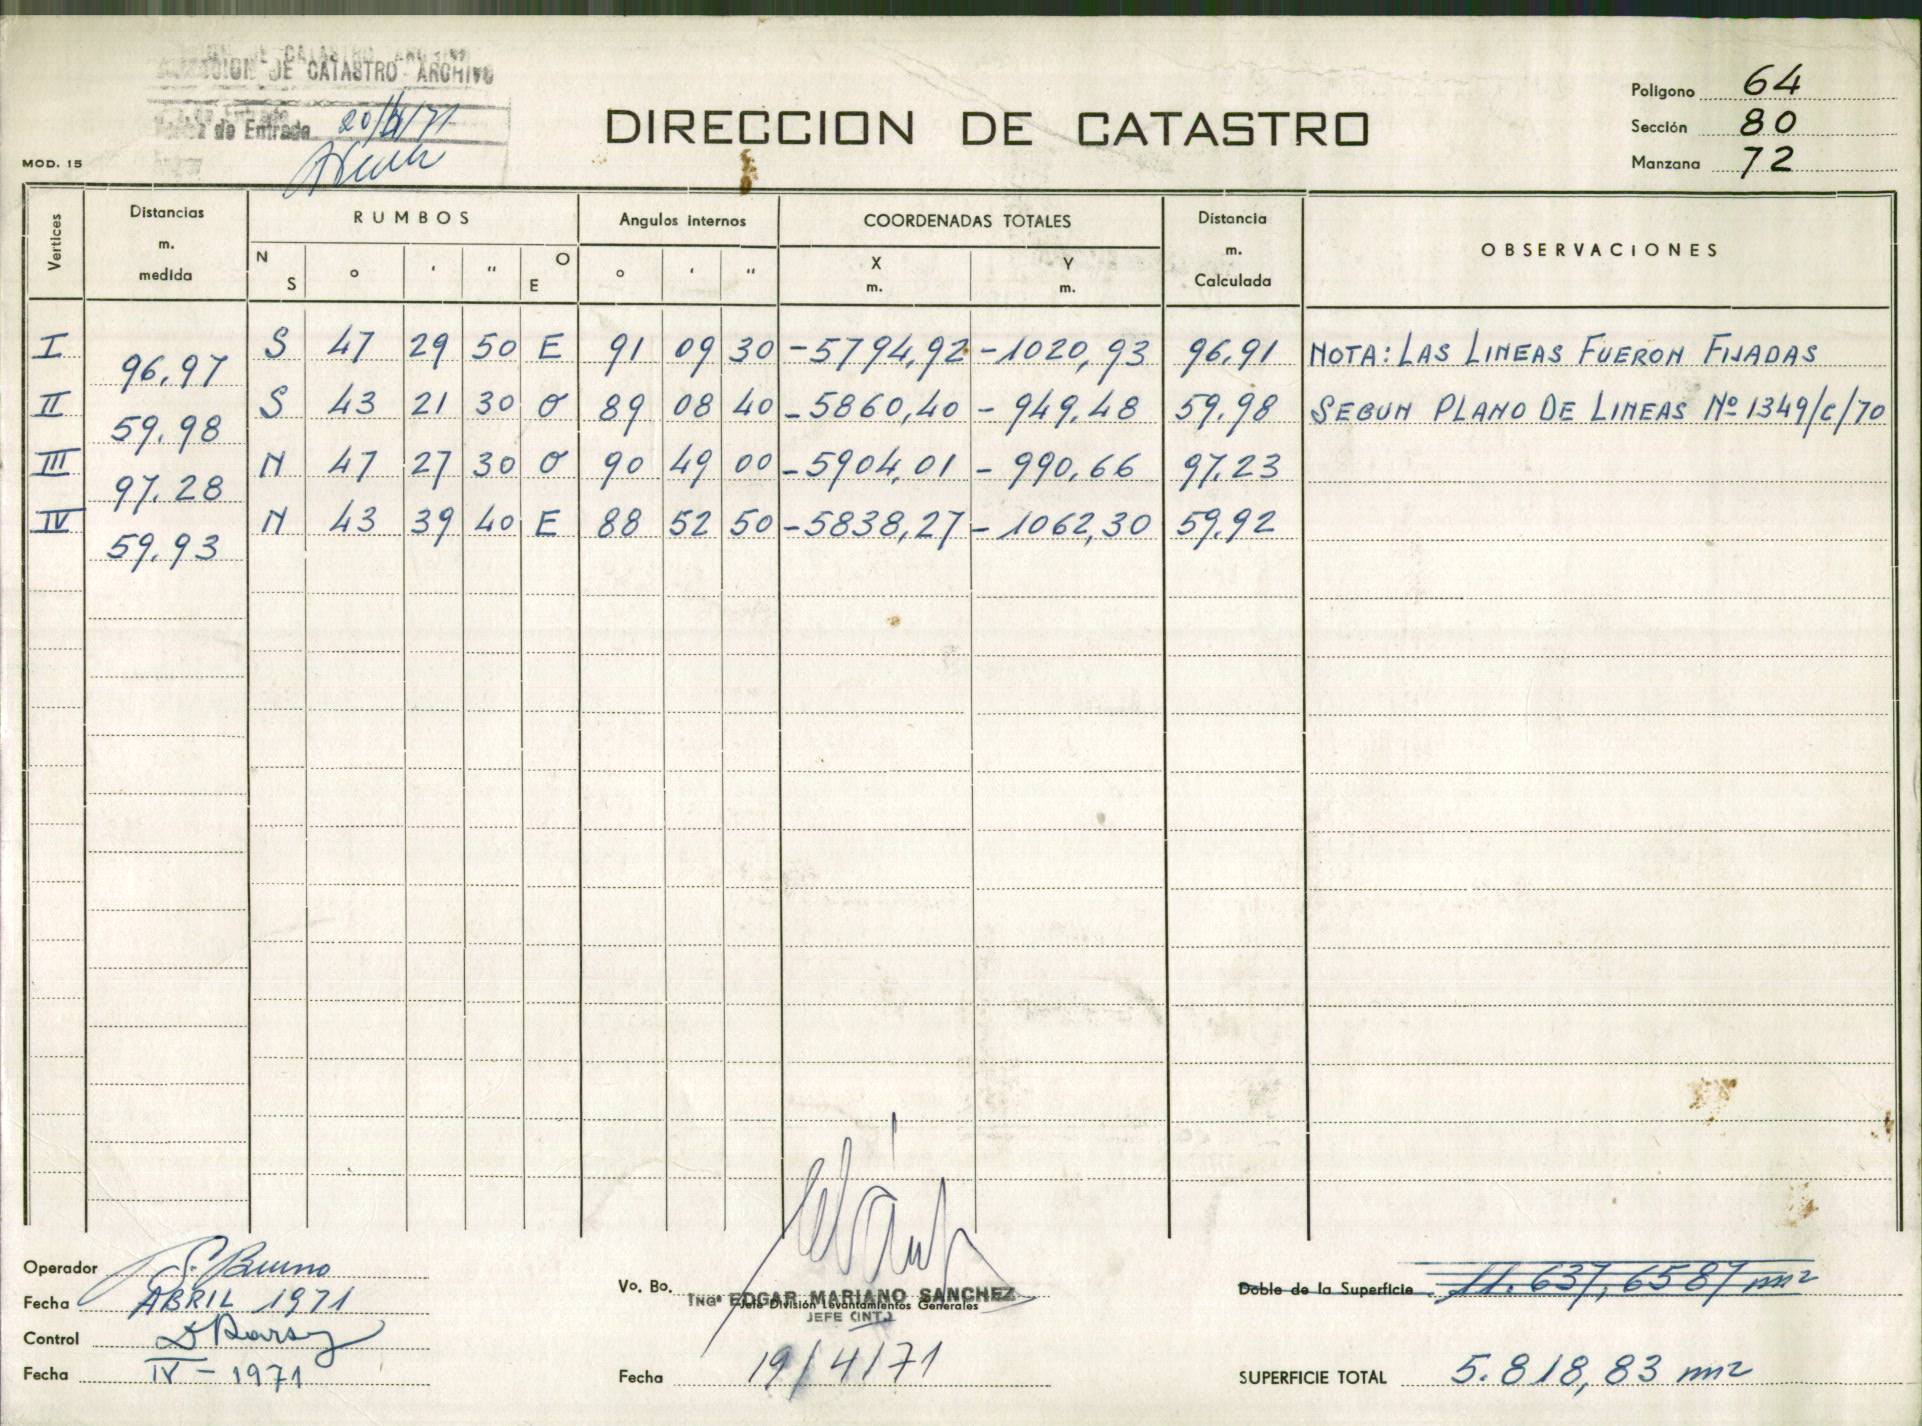 DIRECCION DE CATASTRO - ARCHIVO
de Entrada 20/4/71
MOD. 15
DIRECCION DE CATASTRO
Polígono 64
Sección 80
Manzana 72
Vertices | Distancias m. medida | RUMBOS | Angulos internos | COORDENADAS TOTALES | Distancia m. Calculada | OBSERVACIONES
N S | o | ' | " | O E | o | ' | " | X m. | Y m.
I S 47 29 50 E 91 09 30 -5794,92 -1020,93 96.91 NOTA: LAS LINEAS FUERON FIJADAS
96.97
II S 43 21 30 O 89 08 40 -5860,40 - 949,48 59.98 SEGUN PLANO DE LINEAS Nº 1349/C/70
59.98
III N 47 27 30 O 90 49 00 -5904,01 - 990,66 97.23
97.28
IV N 43 39 40 E 88 52 50 -5838,27 - 1062,30 59.92
59.93
Operador S. Bruno
Fecha ABRIL 1971
Control
Fecha IV - 1971
Vo. Bo.
INGº EDGAR MARIANO SANCHEZ
Jefe División Levantamientos Generales
JEFE (INT.)
Fecha 19/4/71
Doble de la Superficie 11.637,6587 m2
SUPERFICIE TOTAL 5.818,83 m2